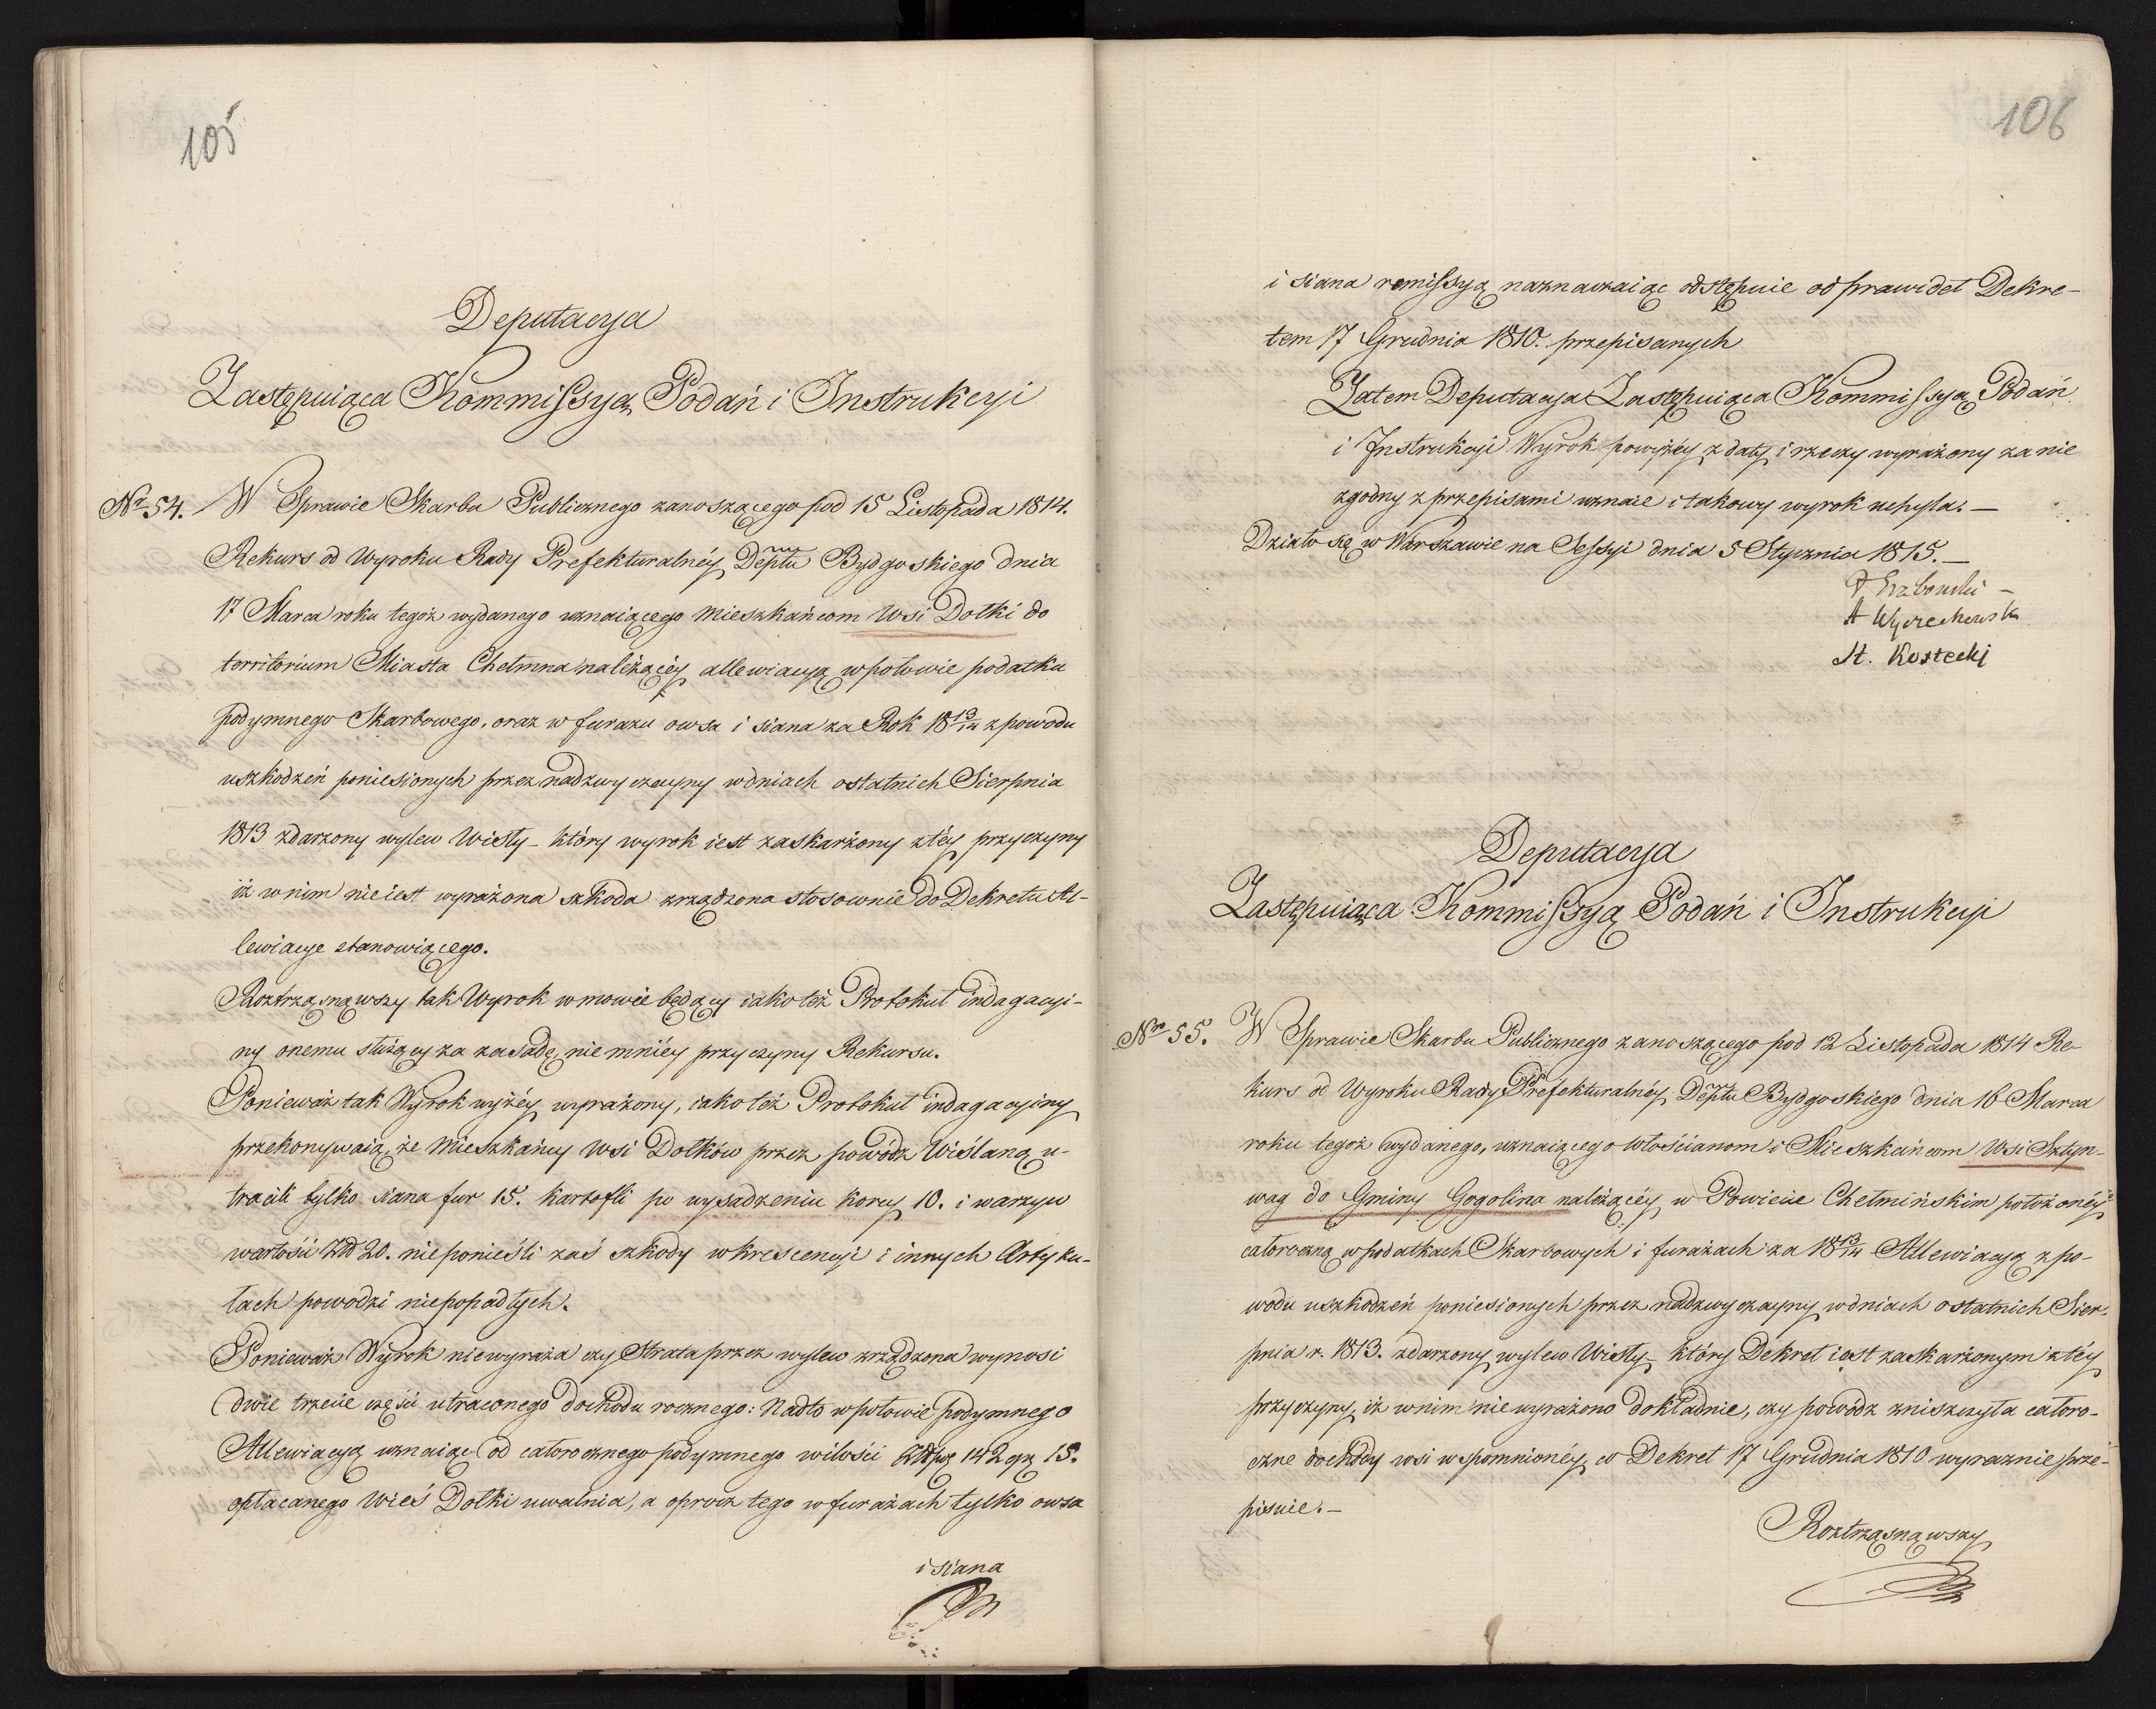 105
Deputacya
Zastępuiąca Kommissyą Podań i Instrukcyi
Nr 54. W Sprawie Skarbu Publicznego zanoszącego pod 15 Listopada 1814.
Rekurs od Wyroku Rady Prefekturalnéy Deptu Bydgoskiego dnia
17 Marca roku tegoż wydanego uznaiącego Mieszkańcom Wsi Dołki do
territorium Miasta Chełmna należącéy allewiacyą w połowie podatku
podymnego Skarbowego, oraz w furażu owsa i siana za Rok 18 13/14 z powodu
uszkodzeń poniesionych przez nadzwyczayny w dniach ostatnich Sierpnia
1813 zdarzony wylew Wisły – który wyrok iest zaskarżony z téy przyczyny
iż w nim nie iest wyrażona szkoda zrządzona stosownie do Dekretu Al-
lewiacye stanowiącego.
Roztrząsnąwszy tak Wyrok w mowie będący iako też Protokuł indagacyi-
ny onemu służący za zasadę, nie mniéy przyczyny Rekursu.
Ponieważ tak Wyrok wyżéy wyrażony, iako też Protokuł indagacyiny
przekonywaią, że Mieszkańcy Wsi Dołków przez powódz Wiślaną u-
tracili tylko siana fur 15. kartofli po wysadzeniu korcy 10. i warzyw
wartości Złł 20. nieponieśli zaś szkody w krescencyi i innych Artyku-
łach powodzi niepopadłych.
Ponieważ Wyrok niewyraża czy Strata przez wylew zrządzona wynosi
dwie trzecie części utraconego dochodu rocznego: Nadto w połowie podymnego
Allewiacyą uznaiąc od całorocznego podymnego w ilości Złłpo 142 gr 15.
opłacanego Wieś Dołki uwalnia, a oprocz tego w furażach tylko owsa
i siana
106
i siana remissyą naznaczaiąc odstępuie od prawideł Dekre-
tem 17 Grudnia 1810. przepisanych
Zatem Deputacya Zastępuiąca Kommissyą Podań
i Instrukcyi Wyrok powyżéy z daty i rzeczy wyrażony za nie
zgodny z przepisami uznaie i takowy wyrok uchyla. –
Działo się w Warszawie na Sessyi dnia 5 Stycznia 1815. –
A Wyczechowsk
St. Kostecki
Deputacya
Zastępuiąca Kommissyą Podań i Instrukcyi
Nro 55. W Sprawie Skarbu Publicznego zanoszącego pod 12 Listopada 1814 Re-
kurs od Wyroku Rady Prefekturalnéy Deptu Bydgoskiego dnia 16 Marca
roku tegoż wydanego, uznaiącego Włościanom i Mieszkańcom Wsi Sztyn-
wag do Gminy Gogolina należącéy w Powiecie Chełmińskim położonéy
całoroczną w podatkach Skarbowych i furażach za 18 13/14 Allewiacyą z po-
wodu uszkodzeń poniesionych przez nadzwyczayny w dniach ostatnich Sier-
pnia r. 1813. zdarzony wylew Wisły – który Dekret iest zaskarżonym z téy
przyczyny, iż w nim nie wyrażono dokładnie, czy powódz zniszczyła całoro-
czne dochody wsi wspomnionéy, co Dekret 17 Grudnia 1810 wyraznie prze-
pisuie. –
Roztrząsnąwszy